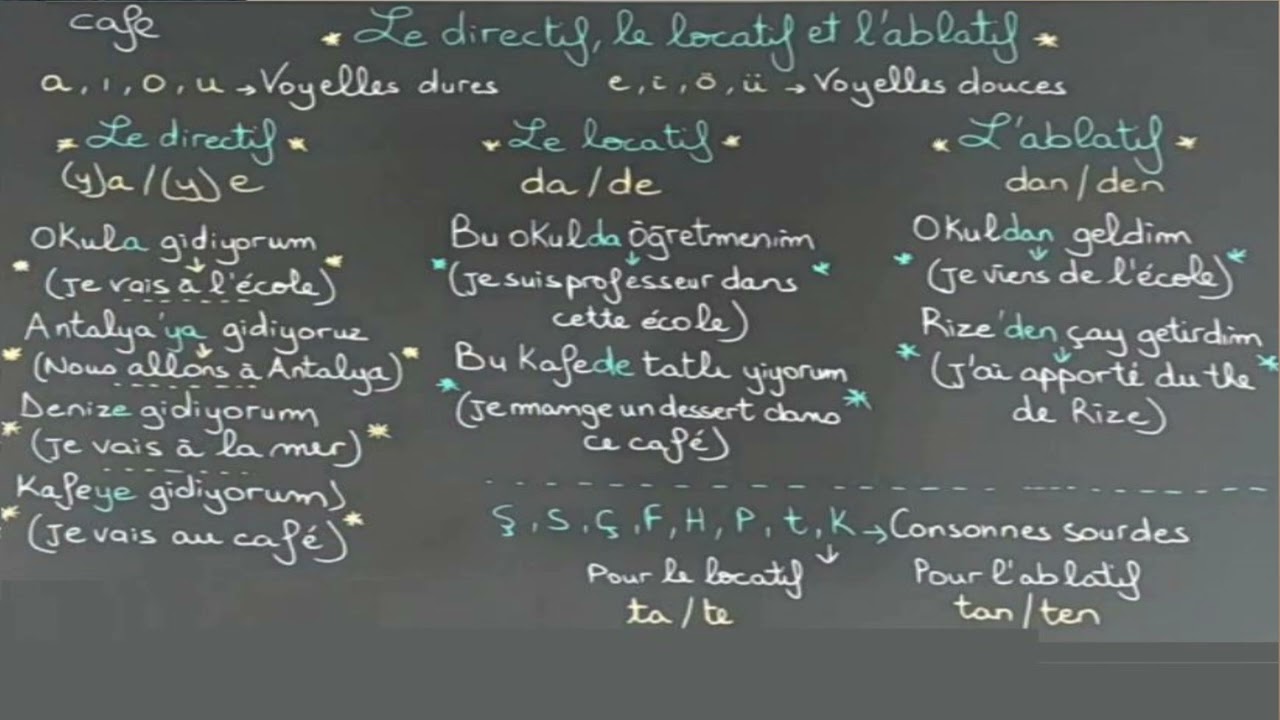 cafe
Le directif, le locatif et l'ablatif
a, ı, o, u → Voyelles dures
e, i, ö, ü → Voyelles douces
Le directif
(y)a / (y)e
Okula gidiyorum
(Je vais à l'école)
Antalya'ya gidiyoruz
(Nous allons à Antalya)
Denize gidiyorum
(Je vais à la mer)
Kafeye gidiyorum)
(Je vais au café)
Le locatif
da / de
Bu okulda öğretmenim
(Je suis professeur dans
cette école)
Bu Kafede tatlı yiyorum
(Je mange un dessert dans
ce café)
L'ablatif
dan / den
Okuldan geldim
(Je viens de l'école)
Rize'den çay getirdim
(J'ai apporté du the
de Rize)
Ş, S, Ç, F, H, P, t, K → Consonnes sourdes
Pour le locatif
ta / te
Pour l'ablatif
tan / ten